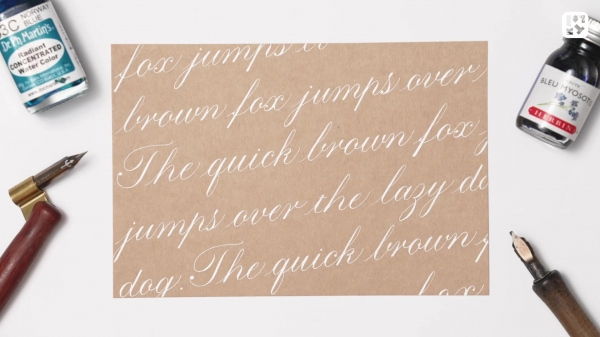 3C NORWAY
BLUE
Dr. Ph. Martin's
Radiant
CONCENTRATED
Water Color
fox jumps
brown fox jumps over
The quick brown fox
jumps over the lazy do
dog. The quick brown
fox
BLEU MYOSOTIS
HERBIN